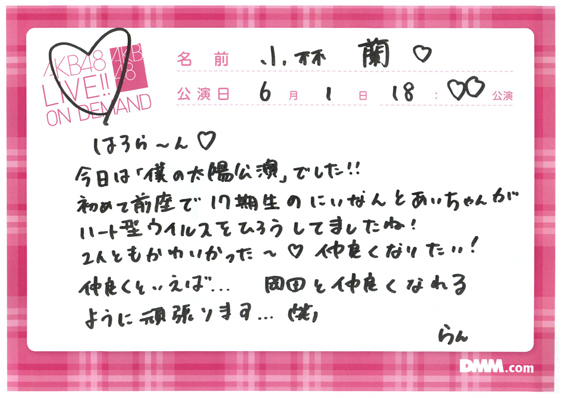 AKB48
LIVE!!
ON DEMAND
AKB
48
名前 小林 蘭 ♡
公演日 6月1日 18:00公演
はろら〜ん♡
今日は「僕の太陽公演」でした!!
初めて前座で17期生のにいなんとあいちゃんが
ハート型ウイルスをひろうしてましたね!
2人ともかわいかった〜♡ 仲良くなりたい!
仲良くといえば... 岡田と仲良くなれる
ように頑張ります...(笑)
らん
DMM.com